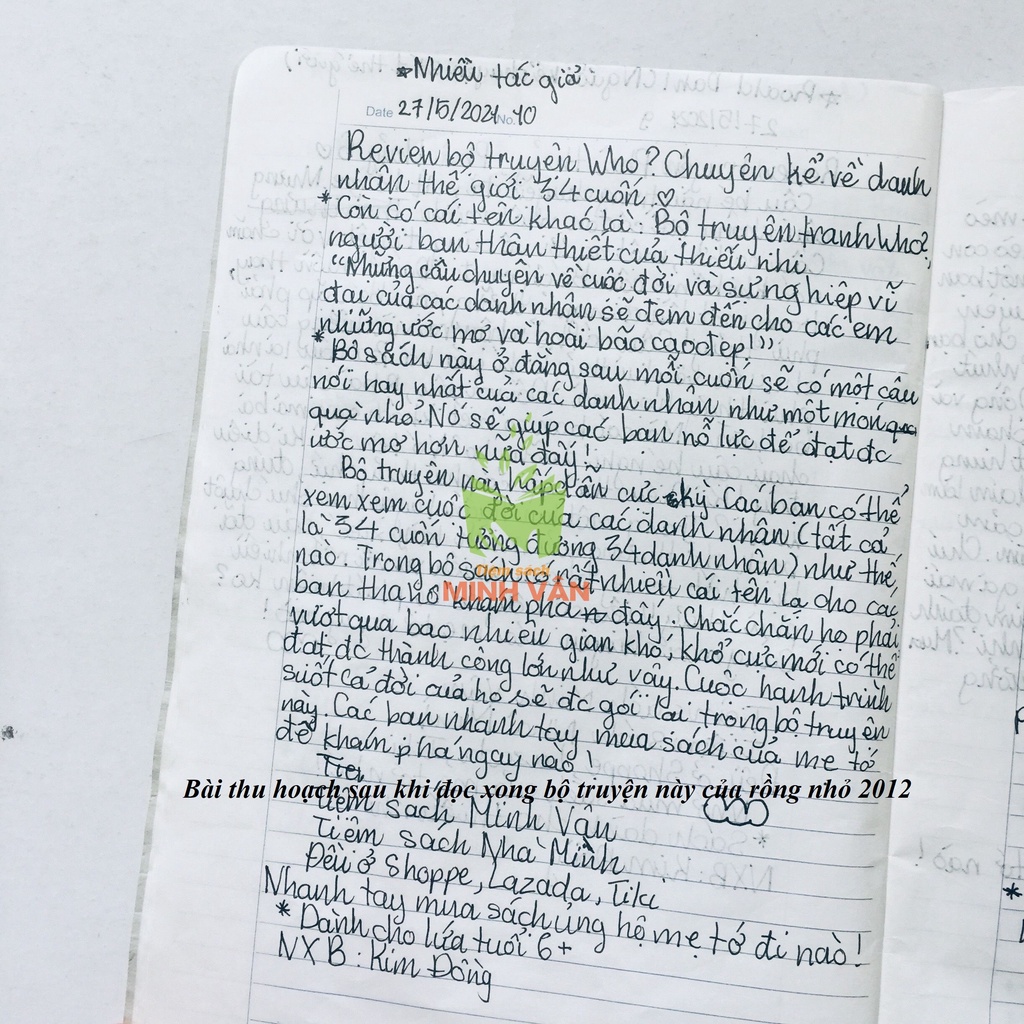 *Nhiều tác giả
Date 27/5/2021 No. 10
Review bộ truyện Who? Chuyện kể về danh
nhân thế giới 34 cuốn ♡
* Còn có cái tên khác là: Bộ truyện tranh Who?,
người bạn thân thiết của thiếu nhi
“Những câu chuyện về cuộc đời và sự nghiệp vĩ
đại của các danh nhân sẽ đem đến cho các em
những ước mơ và hoài bão cao đẹp!”
* Bộ sách này ở đằng sau mỗi cuốn sẽ có một câu
nói hay nhất của các danh nhân như một món quà
quà nhỏ. Nó sẽ giúp các bạn nỗ lực để đạt đc
ước mơ hơn nữa đấy!
Bộ truyện này hấp dẫn cực kỳ. Các bạn có thể
xem xem cuộc đời của các danh nhân (tất cả
là 34 cuốn tương đương 34 danh nhân) như thế
nào. Trong bộ sách có rất nhiều cái tên lạ cho các
bạn tha hồ khám phá đấy. Chắc chắn họ phải
vượt qua bao nhiêu gian khó, khổ cực mới có thể
đạt đc thành công lớn như vậy. Cuộc hành trình
suốt cả đời của họ sẽ đc gói lại trong bộ truyện
này. Các bạn nhanh tay mua sách của mẹ tớ
để khám phá ngay nào!
Tiệ
Bài thu hoạch sau khi đọc xong bộ truyện này của rồng nhỏ 2012
Tiệm sách Minh Vân
Tiệm sách Nhà Mình
Đều ở Shoppe, Lazada, Tiki
Nhanh tay mua sách ủng hộ mẹ tớ đi nào!
* Dành cho lứa tuổi 6+
NXB: Kim Đồng
Tiệm sách
MINH VÂN